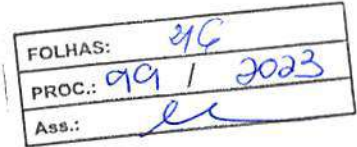 FOLHAS: 46
PROC.: 99 / 2023
Ass.: